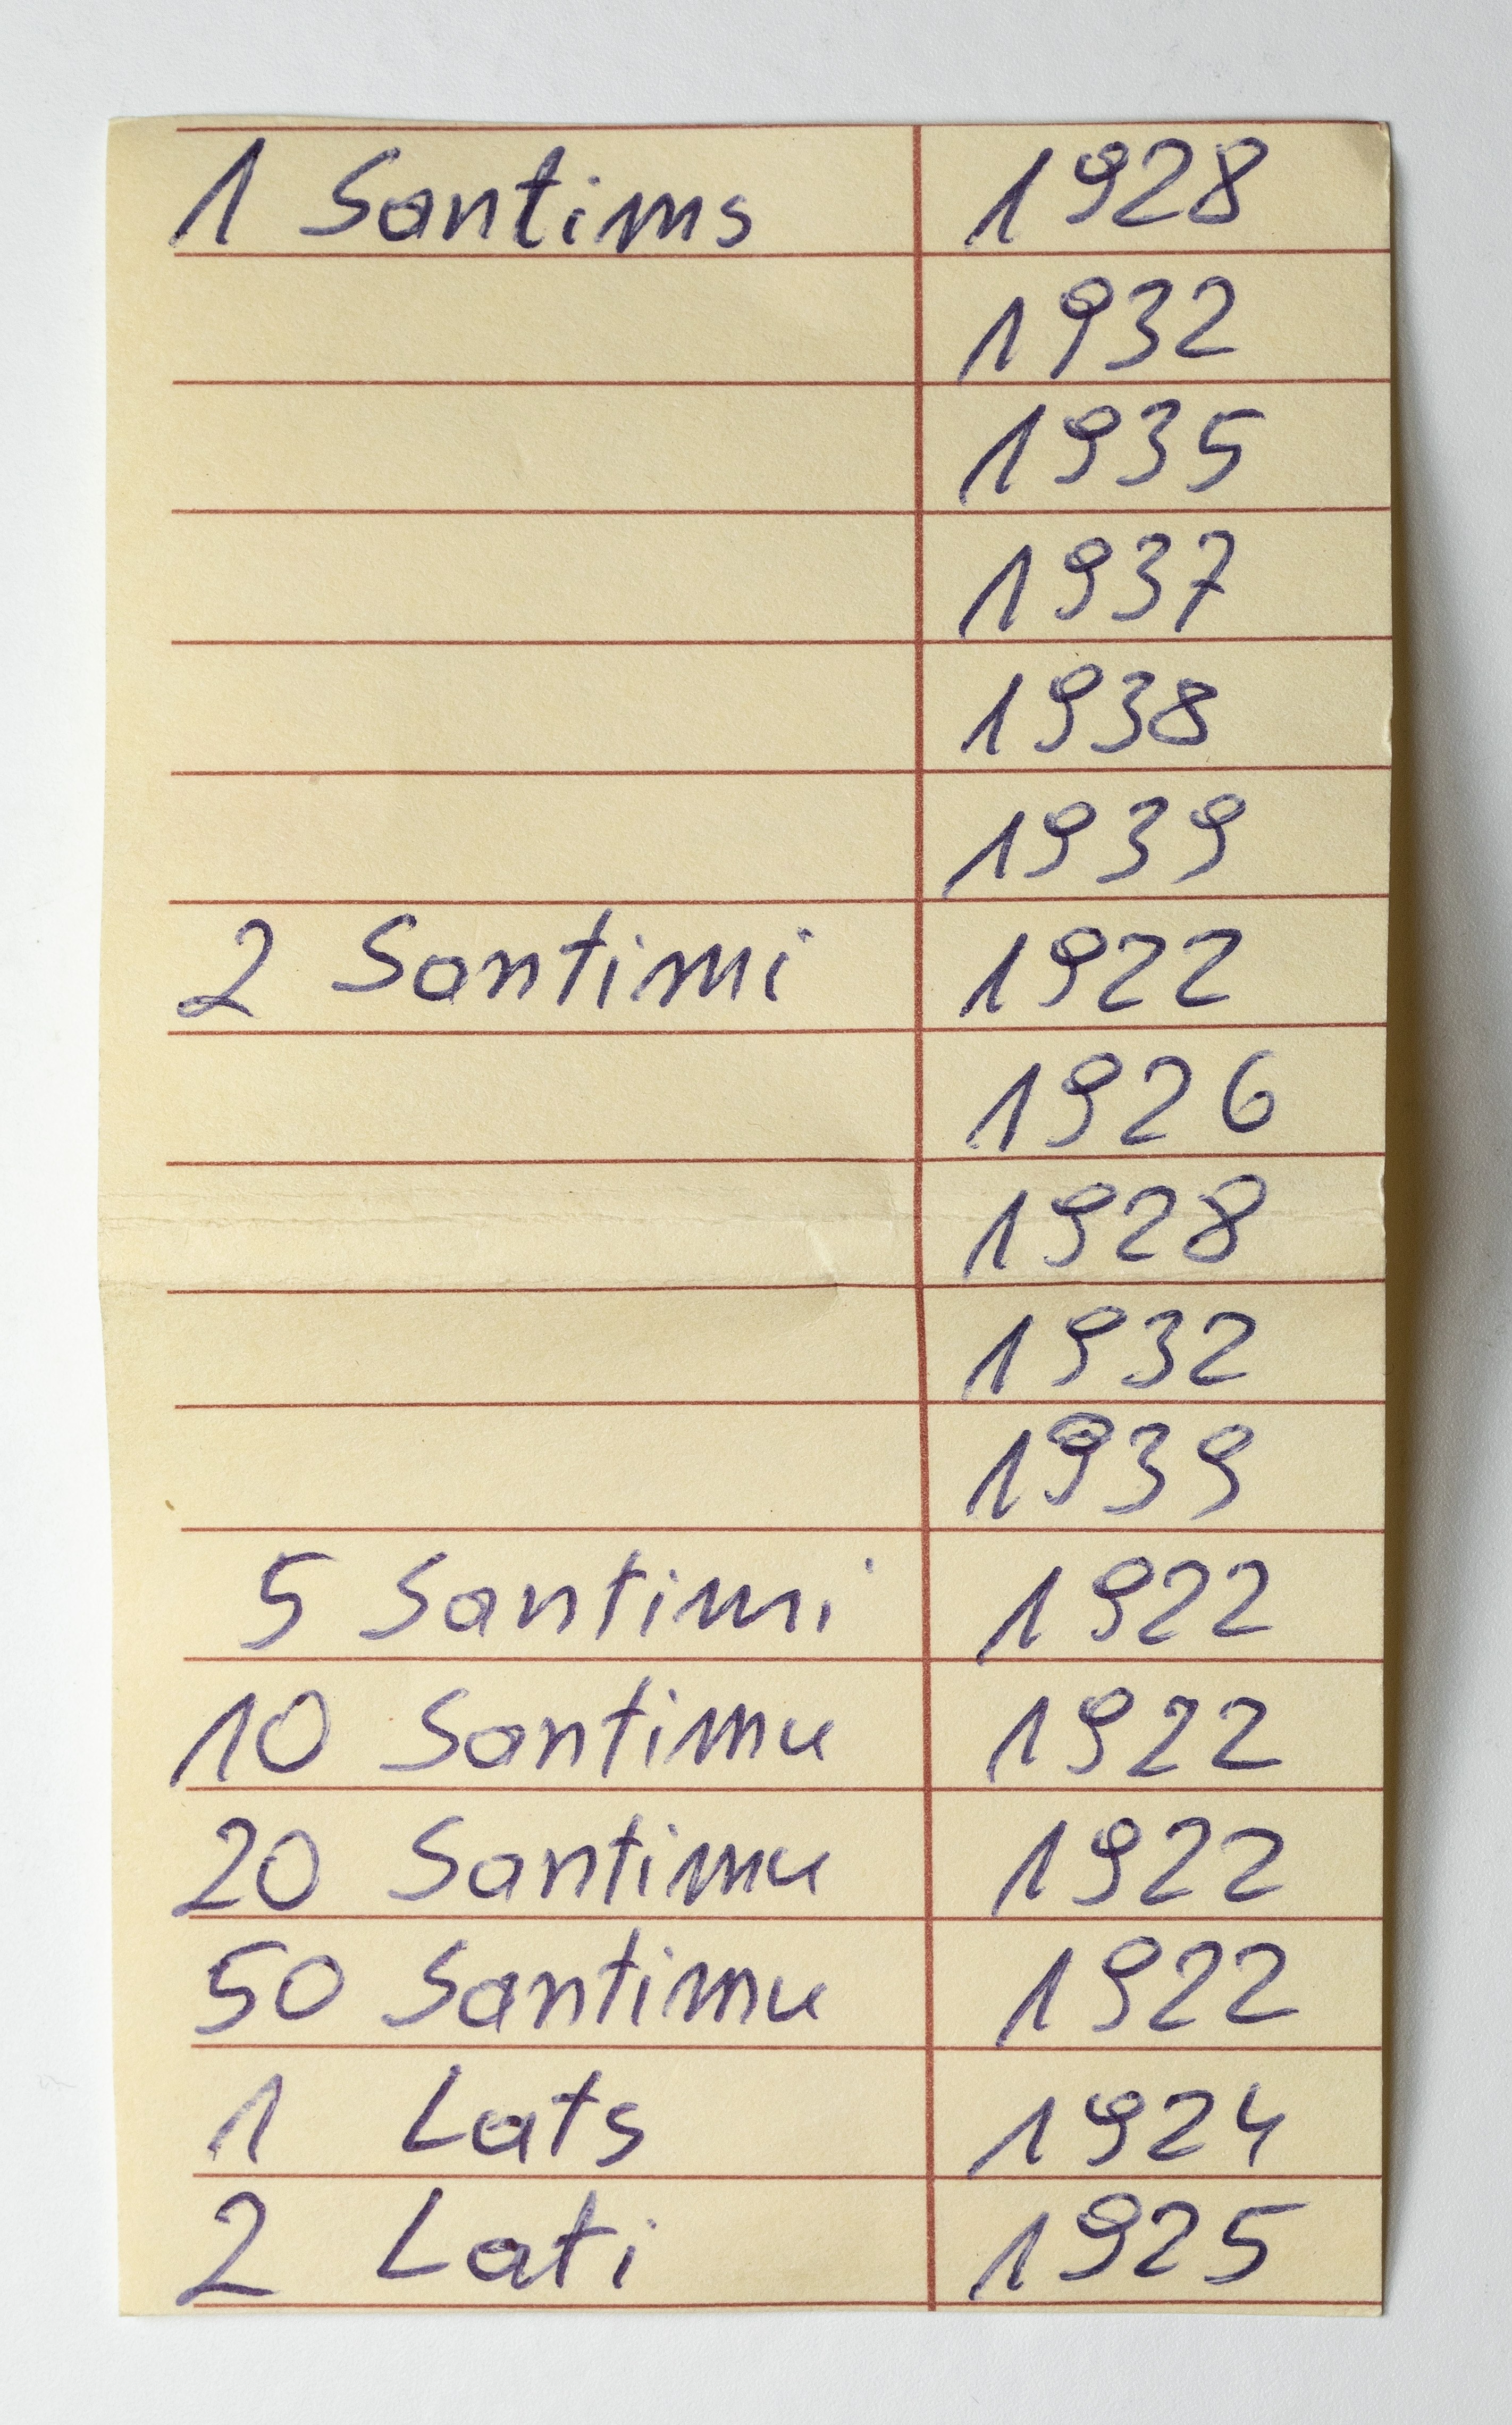 1 Santims 1928
1932
1935
1937
1938
1939
2 Santimi 1922
1926
1928
1932
1939
5 Santimi 1922
10 Santimu 1922
20 Santimu 1922
50 Santimu 1922
1 Lats 1924
2 Lati 1925